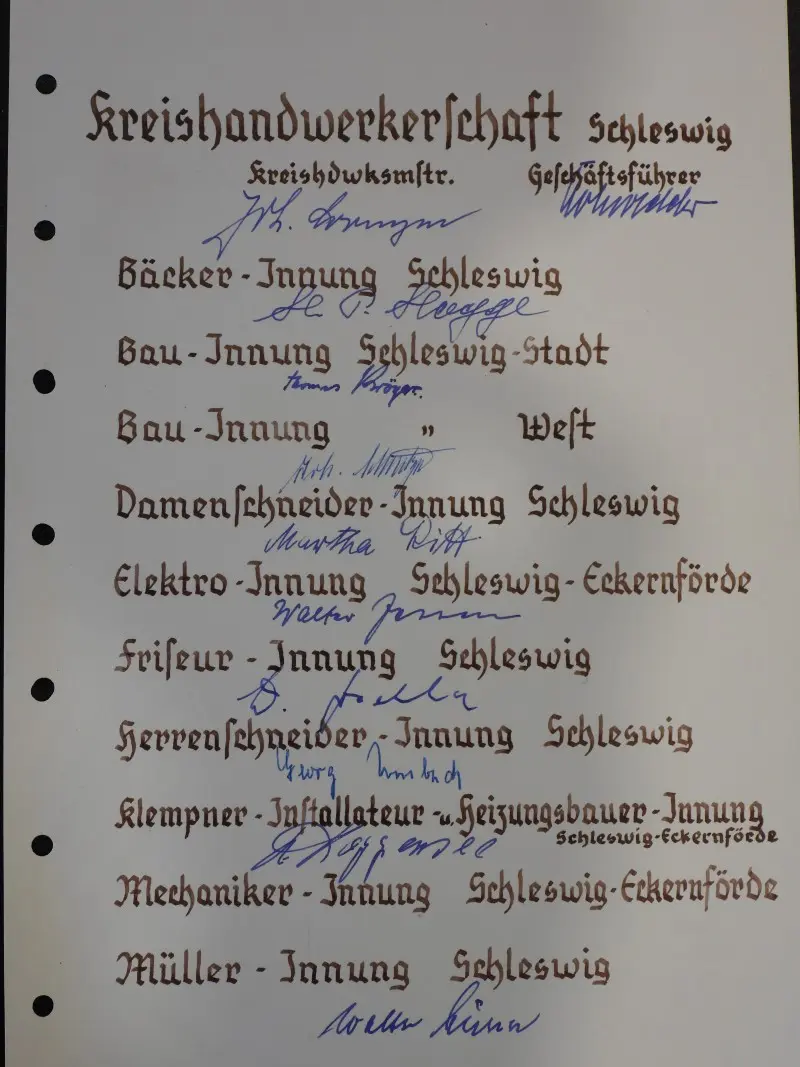 Kreishandwerkerschaft Schleswig
Kreishdwksmstr. Geschäftsführer
Joh.
Bäcker-Innung Schleswig
H. P. Hagge
Bau-Innung Schleswig-Stadt
Thomas Kröger.
Bau-Innung " West
Joh.
Damenschneider-Innung Schleswig
Martha Ritt
Elektro-Innung Schleswig-Eckernförde
Walter Jensen
Friseur-Innung Schleswig
Herrenschneider-Innung Schleswig
Georg Umbach
Klempner-Installateur-u. Heizungsbauer-Innung
Schleswig-Eckernförde
Koggensee
Mechaniker-Innung Schleswig-Eckernförde
Müller-Innung Schleswig
Walter